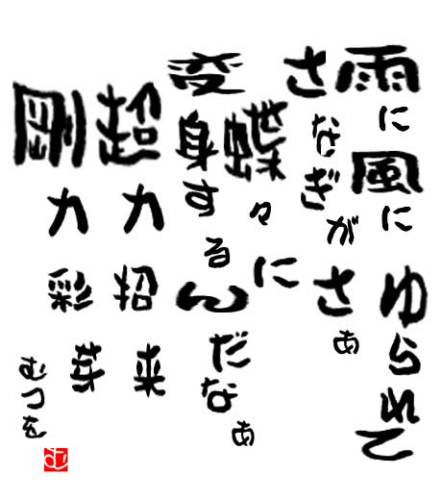 雨に風にゆられて
さなぎがさぁ
蝶々に
変身するんだなぁ
超力招来
剛力彩芽
むつを
む